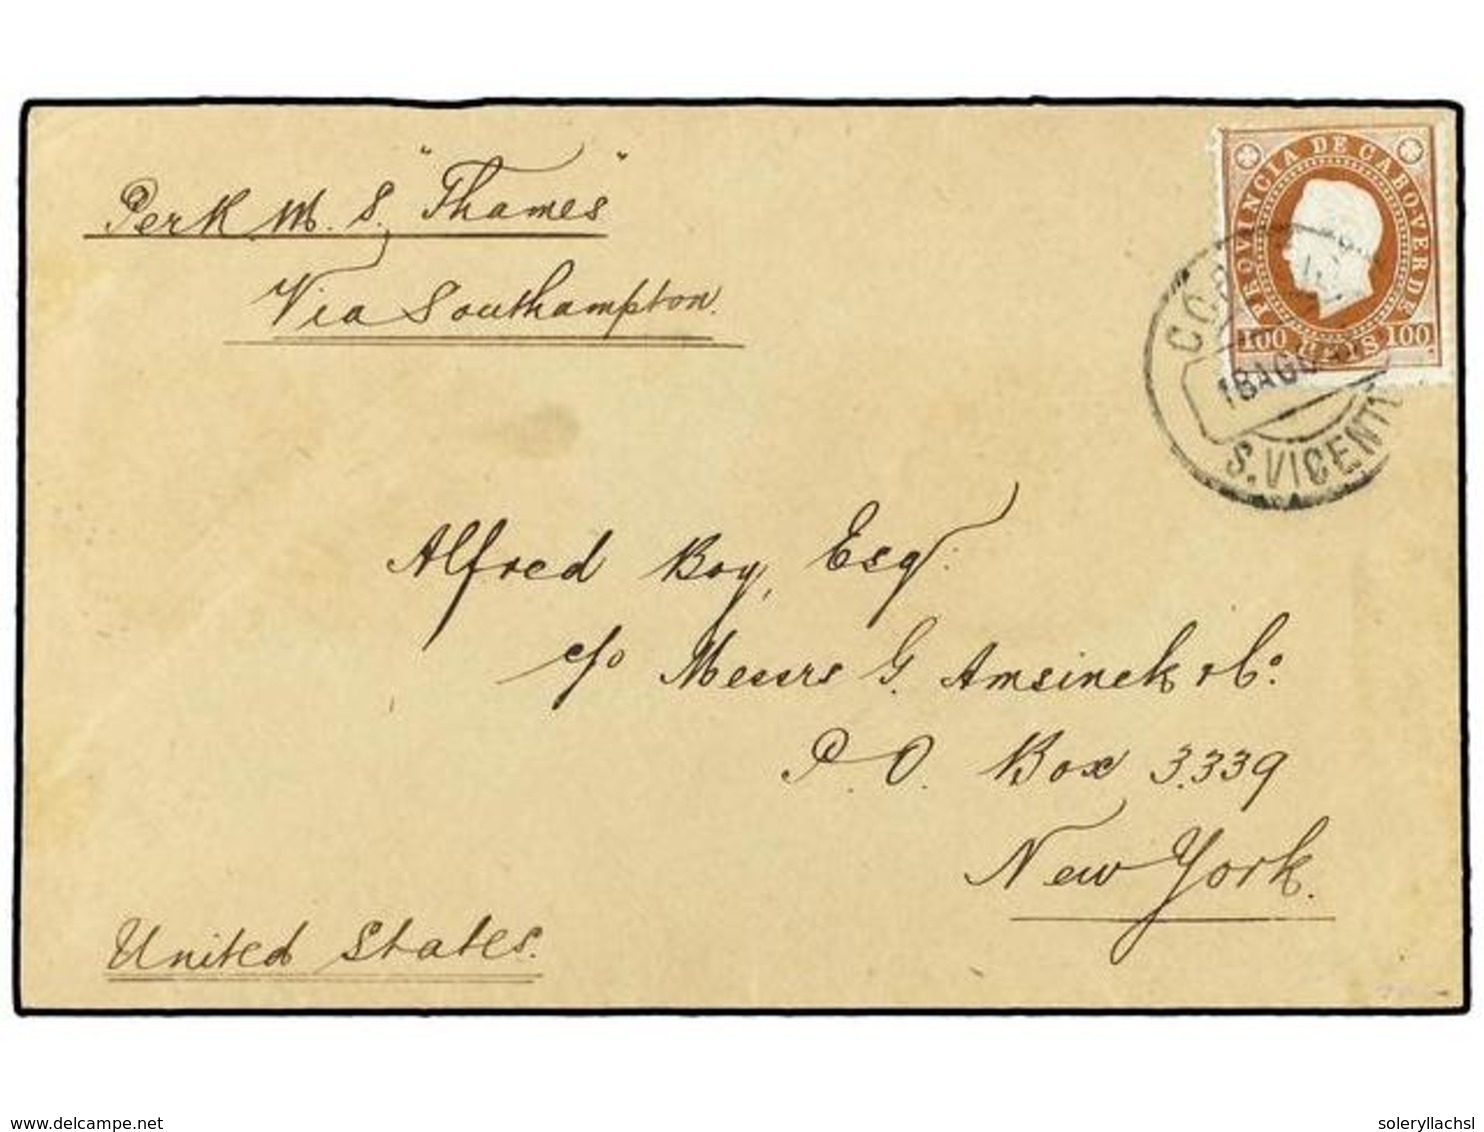 Per R. M. S. "Thames"
Via Southampton.
PROVINCIA DE CABO VERDE
100 REIS 100
18 AGO
S. VICENTE
Alfred Boy, Esq.
c/o Messrs G. Amsinck & Co.
P. O. Box 3.339
New York.
United States.
www.delcampe.net
soleryllachsl